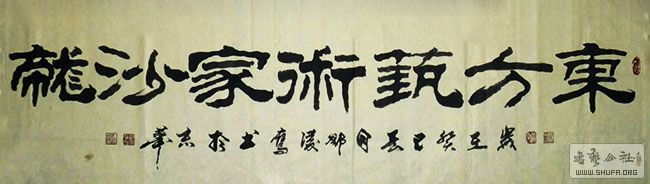 東方藝術家沙龍
歲在癸巳月凌鷹书於京華
書藝公社
WWW.SHUFA.ORG